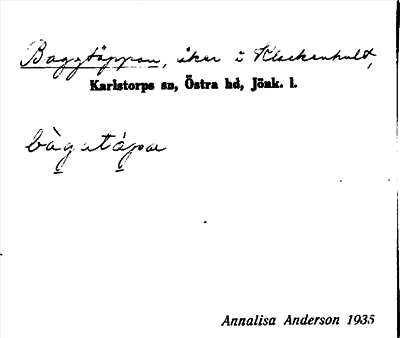 Baggtäppan, åker i Klackenhult,
Karlstorps sn, Östra hd, Jönk. l.
Annalisa Anderson 1935